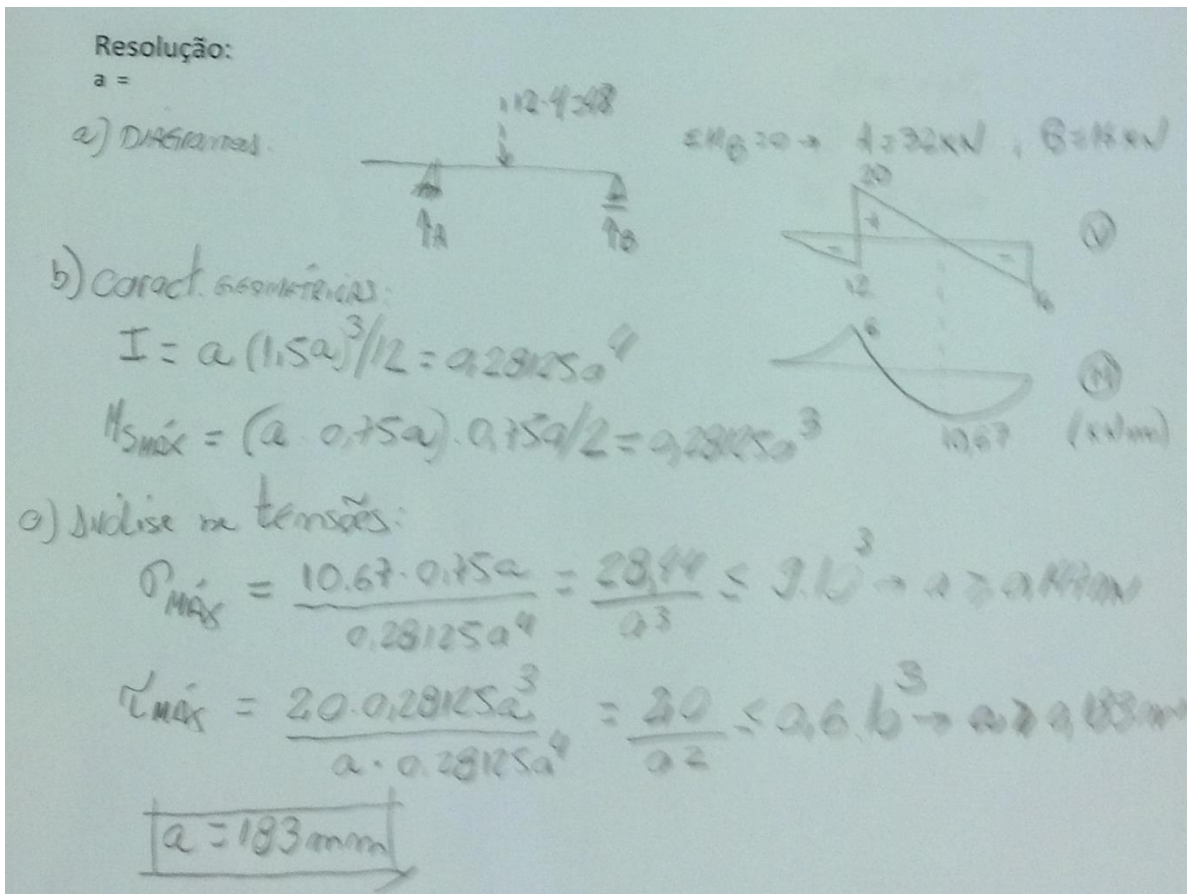 Resolução:
a =
a) DIAGRAMAS.
12·4=48
ΣM_B=0 → A=32kN, B=16kN
A
B
20
+
-
-
12
16
V
b) Caract. GEOMÉTRICAS:
I = a (1,5a)³/12 = 0,28125a⁴
6
10,67
M
(kN/mm)
Msmáx = (a · 0,75a) · 0,75a/2 = 0,28125a³
c) Análise de tensões:
σmáx = 10.67·0,75a / 0.28125a⁴ = 28,44 / a³ ≤ 9.10³ → a ≥ 0,147m
τmáx = 20·0,28125a³ / a·0.28125a⁴ = 20 / a² ≤ 0,6.10³ → a ≥ 0,183m
a = 183mm